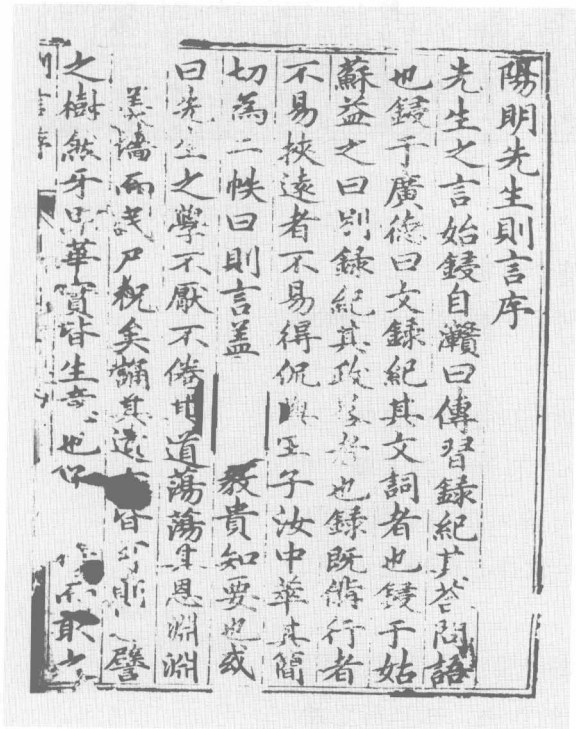 陽明先生則言序
先生之言始鋟自灨曰傳習錄紀其荅問語
也鋟于廣德曰文錄紀其文詞者也鋟于姑
蘇益之曰別錄紀其政畧者也錄既備行者
不易挾遠者不易得侃與王子汝中萃其簡
切為二帙曰則言盖教貴知要也或
曰先生之學不厭不倦其道蕩蕩其恩淵淵
羹墻而謨尸祝矣諦其遠皆分則譬
之樹然牙甲華實皆生意也取
則言序